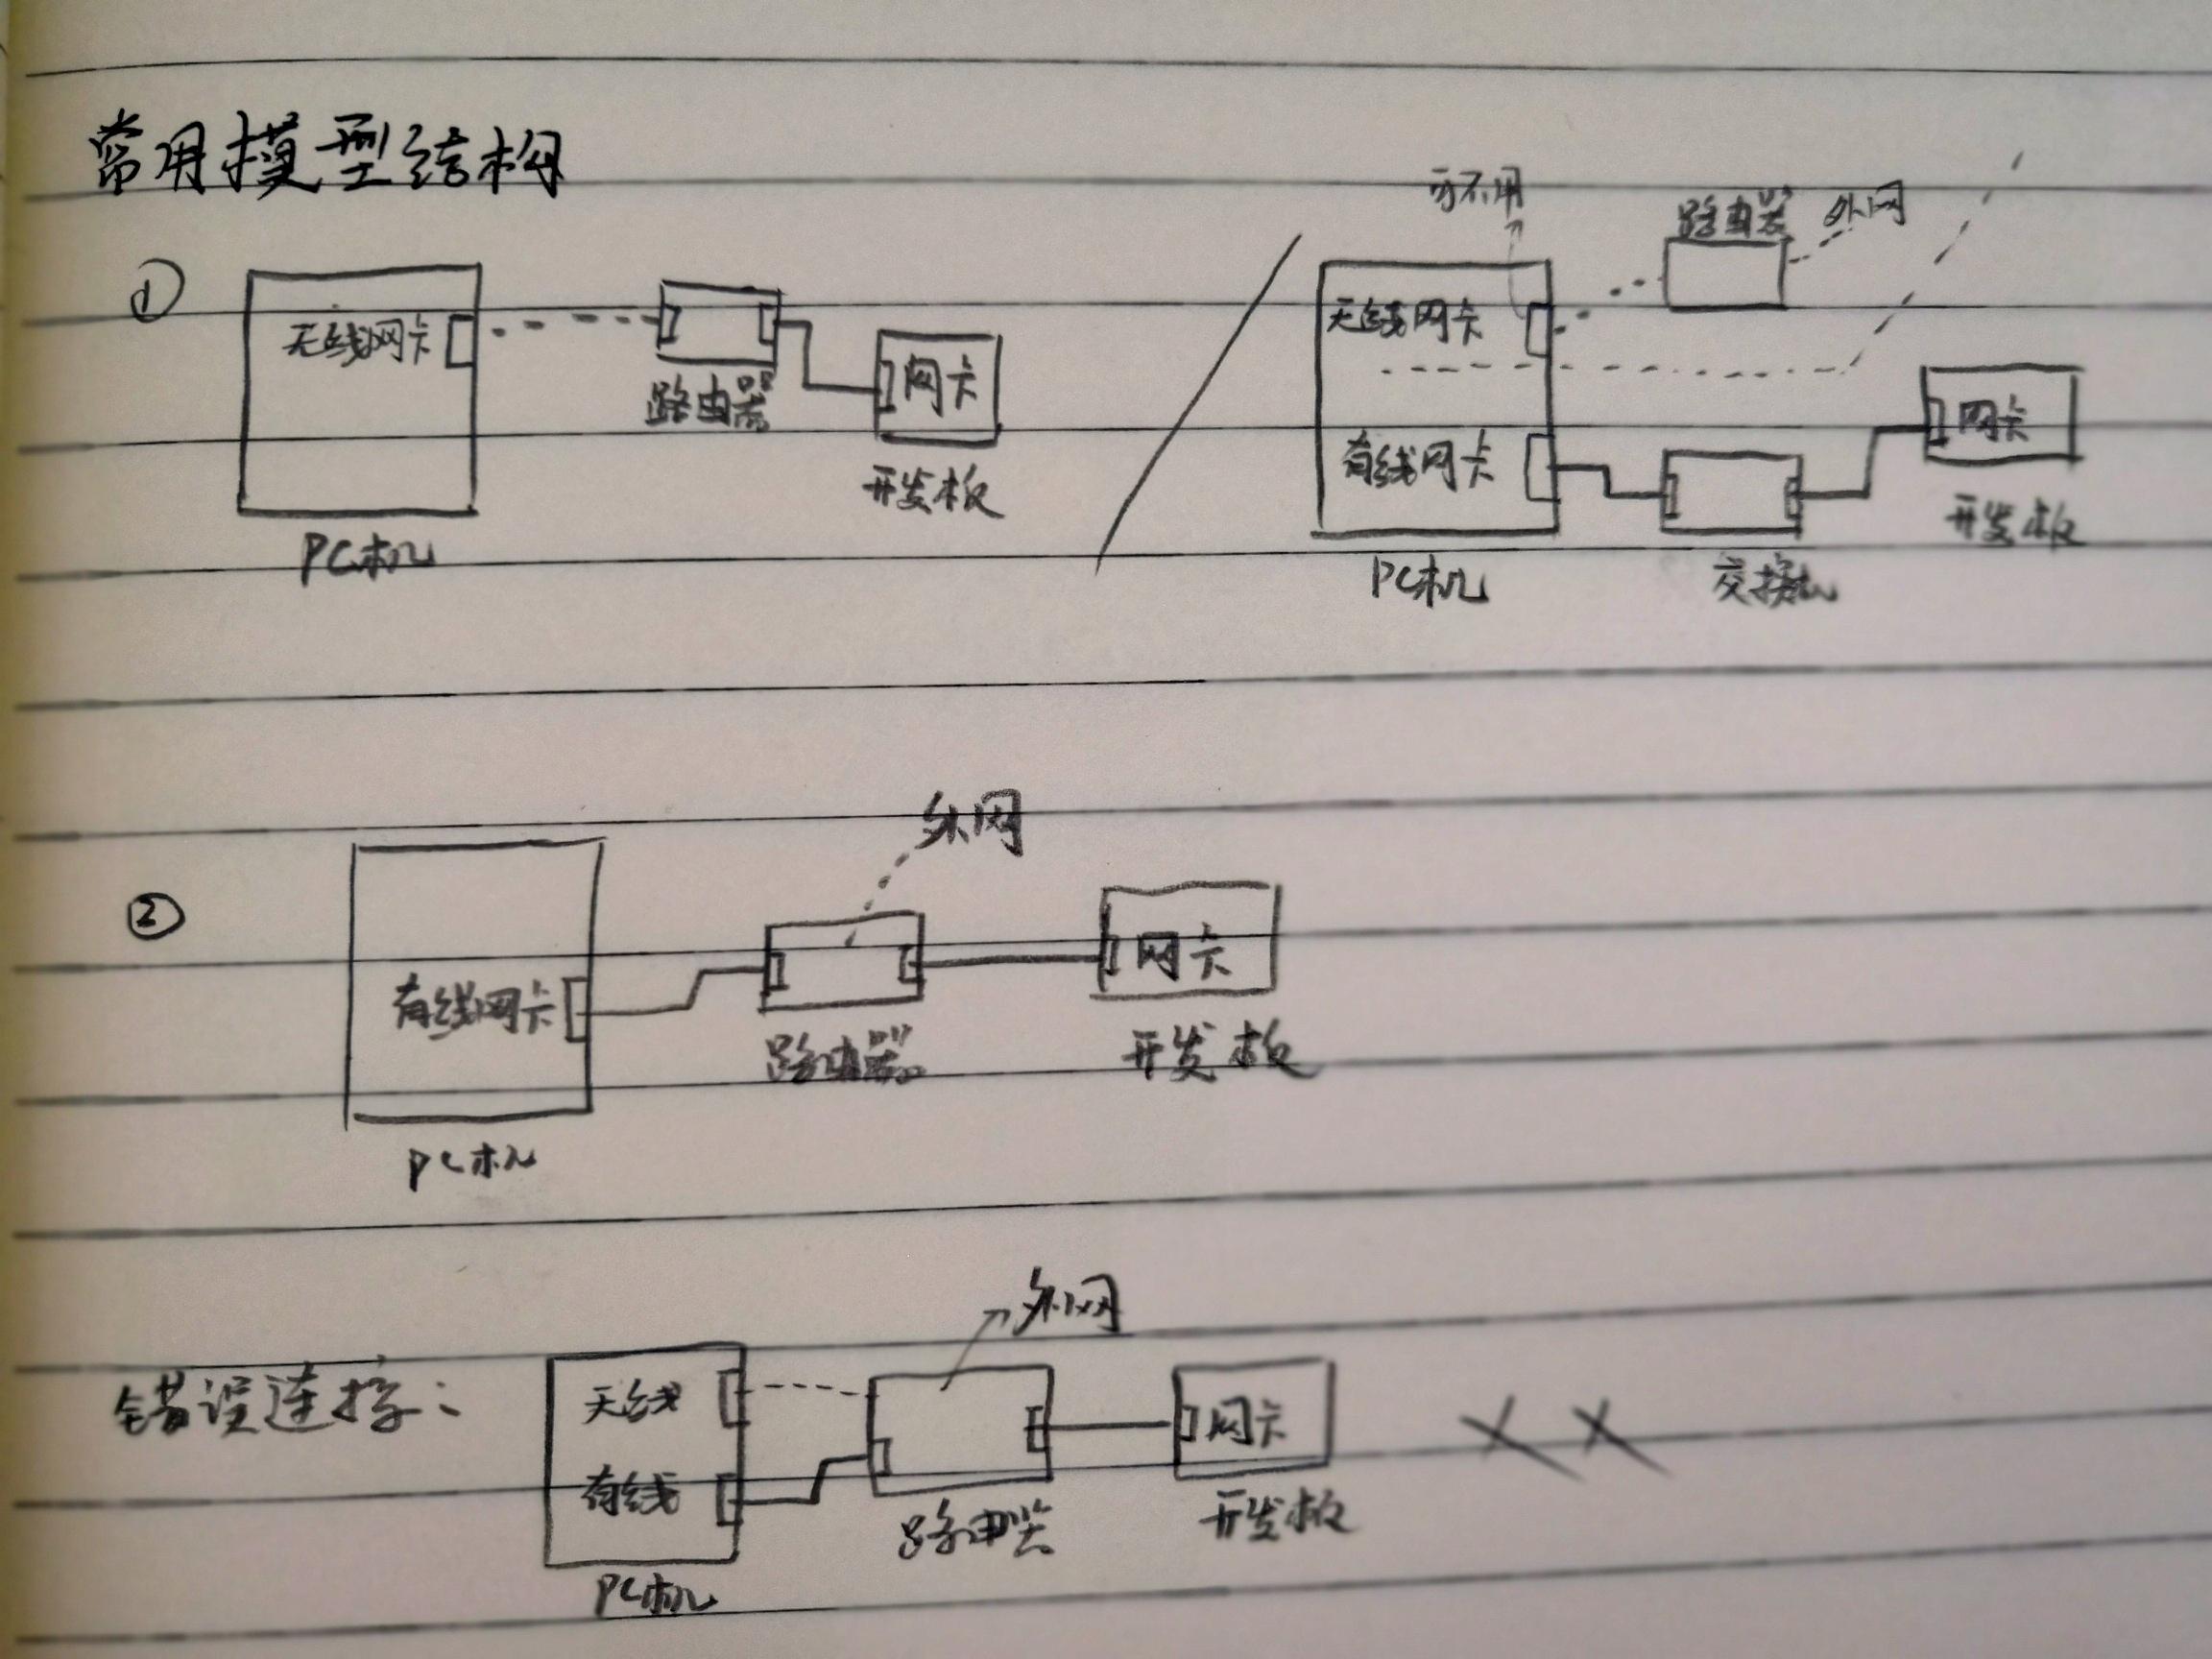 常用模型结构
可不用
路由器 外网
①
无线网卡
路由器
网卡
开发板
PC机
无线网卡
有线网卡
网卡
开发板
PC机
交换机
外网
②
有线网卡
网卡
路由器
开发板
PC机
外网
错误连接:
无线
有线
网卡
××
路由器
开发板
PC机